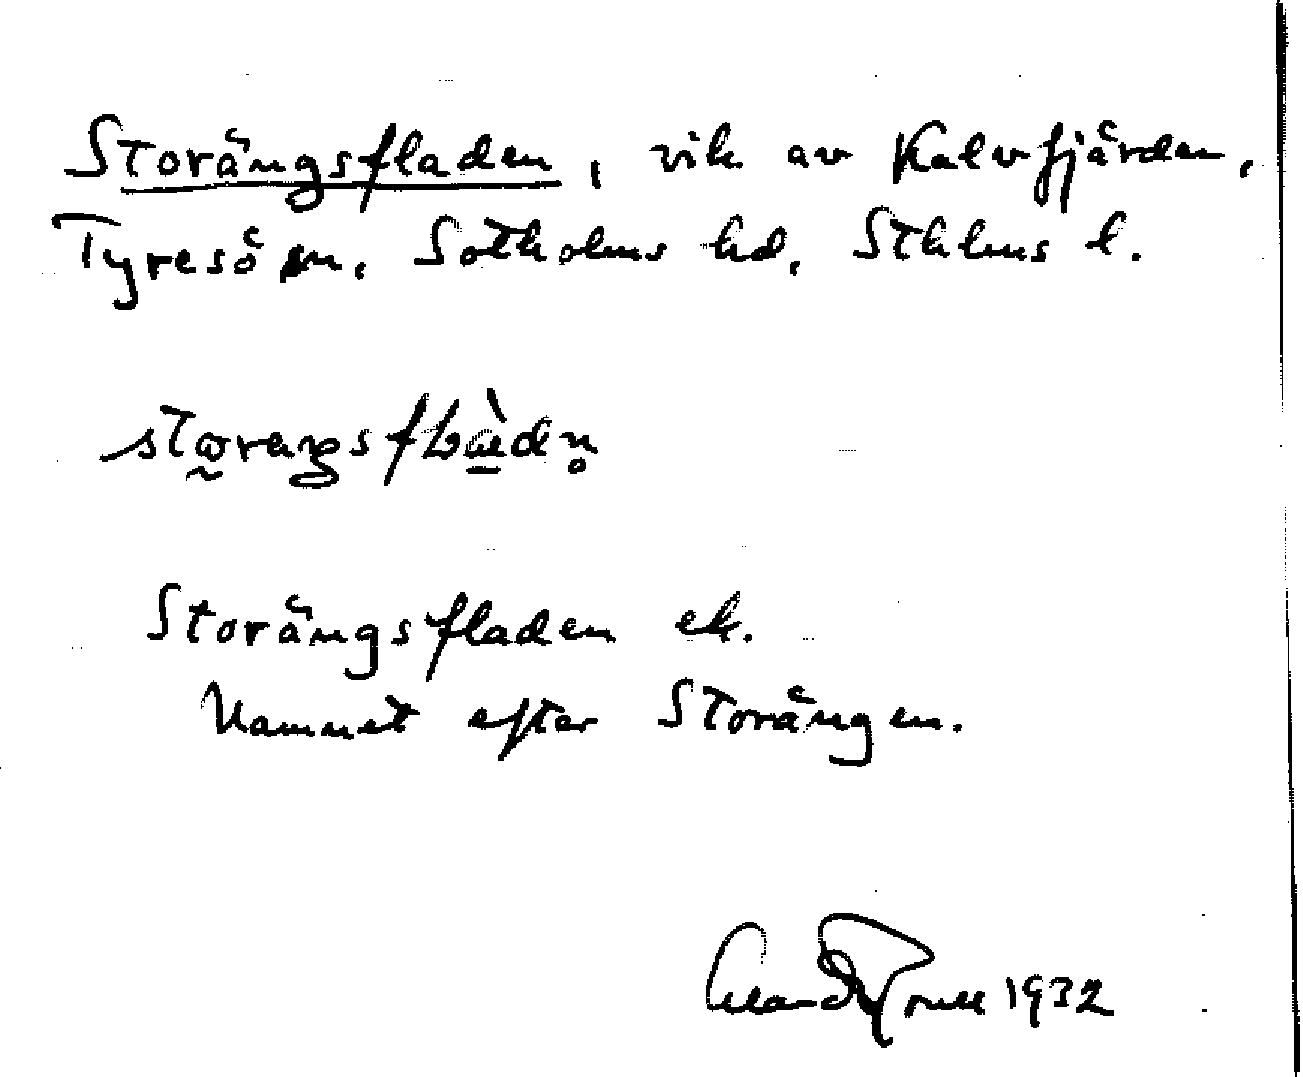 Storängsfladen, vik av Kalvfjärden,
Tyresö sn, Sotholms hd, Sthlms l.
Storängsfladen ek.
Namnet efter Storängen.
1932